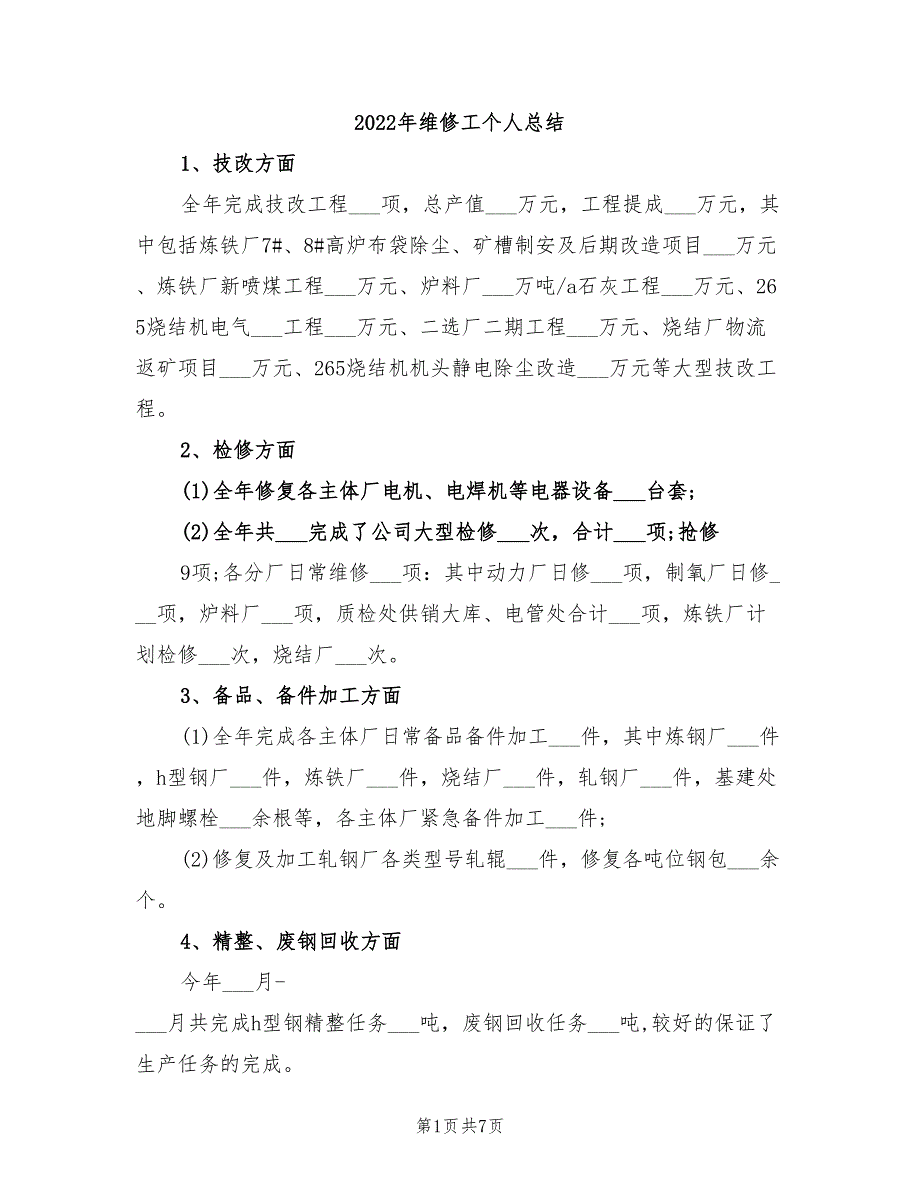 2022年维修工个人总结
1、技改方面
全年完成技改工程___项，总产值___万元，工程提成___万元，其
中包括炼铁厂7#、8#高炉布袋除尘、矿槽制安及后期改造项目___万元
、炼铁厂新喷煤工程___万元、炉料厂___万吨/a石灰工程___万元、26
5烧结机电气___工程___万元、二选厂二期工程___万元、烧结厂物流
返矿项目___万元、265烧结机机头静电除尘改造___万元等大型技改工
程。
2、检修方面
(1)全年修复各主体厂电机、电焊机等电器设备___台套;
(2)全年共___完成了公司大型检修___次，合计___项;抢修
9项;各分厂日常维修___项：其中动力厂日修___项，制氧厂日修_
__项，炉料厂___项，质检处供销大库、电管处合计___项，炼铁厂计
划检修___次，烧结厂___次。
3、备品、备件加工方面
(1)全年完成各主体厂日常备品备件加工___件，其中炼钢厂___件
，h型钢厂___件，炼铁厂___件，烧结厂___件，轧钢厂___件，基建处
地脚螺栓___余根等，各主体厂紧急备件加工___件;
(2)修复及加工轧钢厂各类型号轧辊___件，修复各吨位钢包___余
个。
4、精整、废钢回收方面
今年___月-
___月共完成h型钢精整任务___吨，废钢回收任务___吨,较好的保证了
生产任务的完成。
第1页共7页